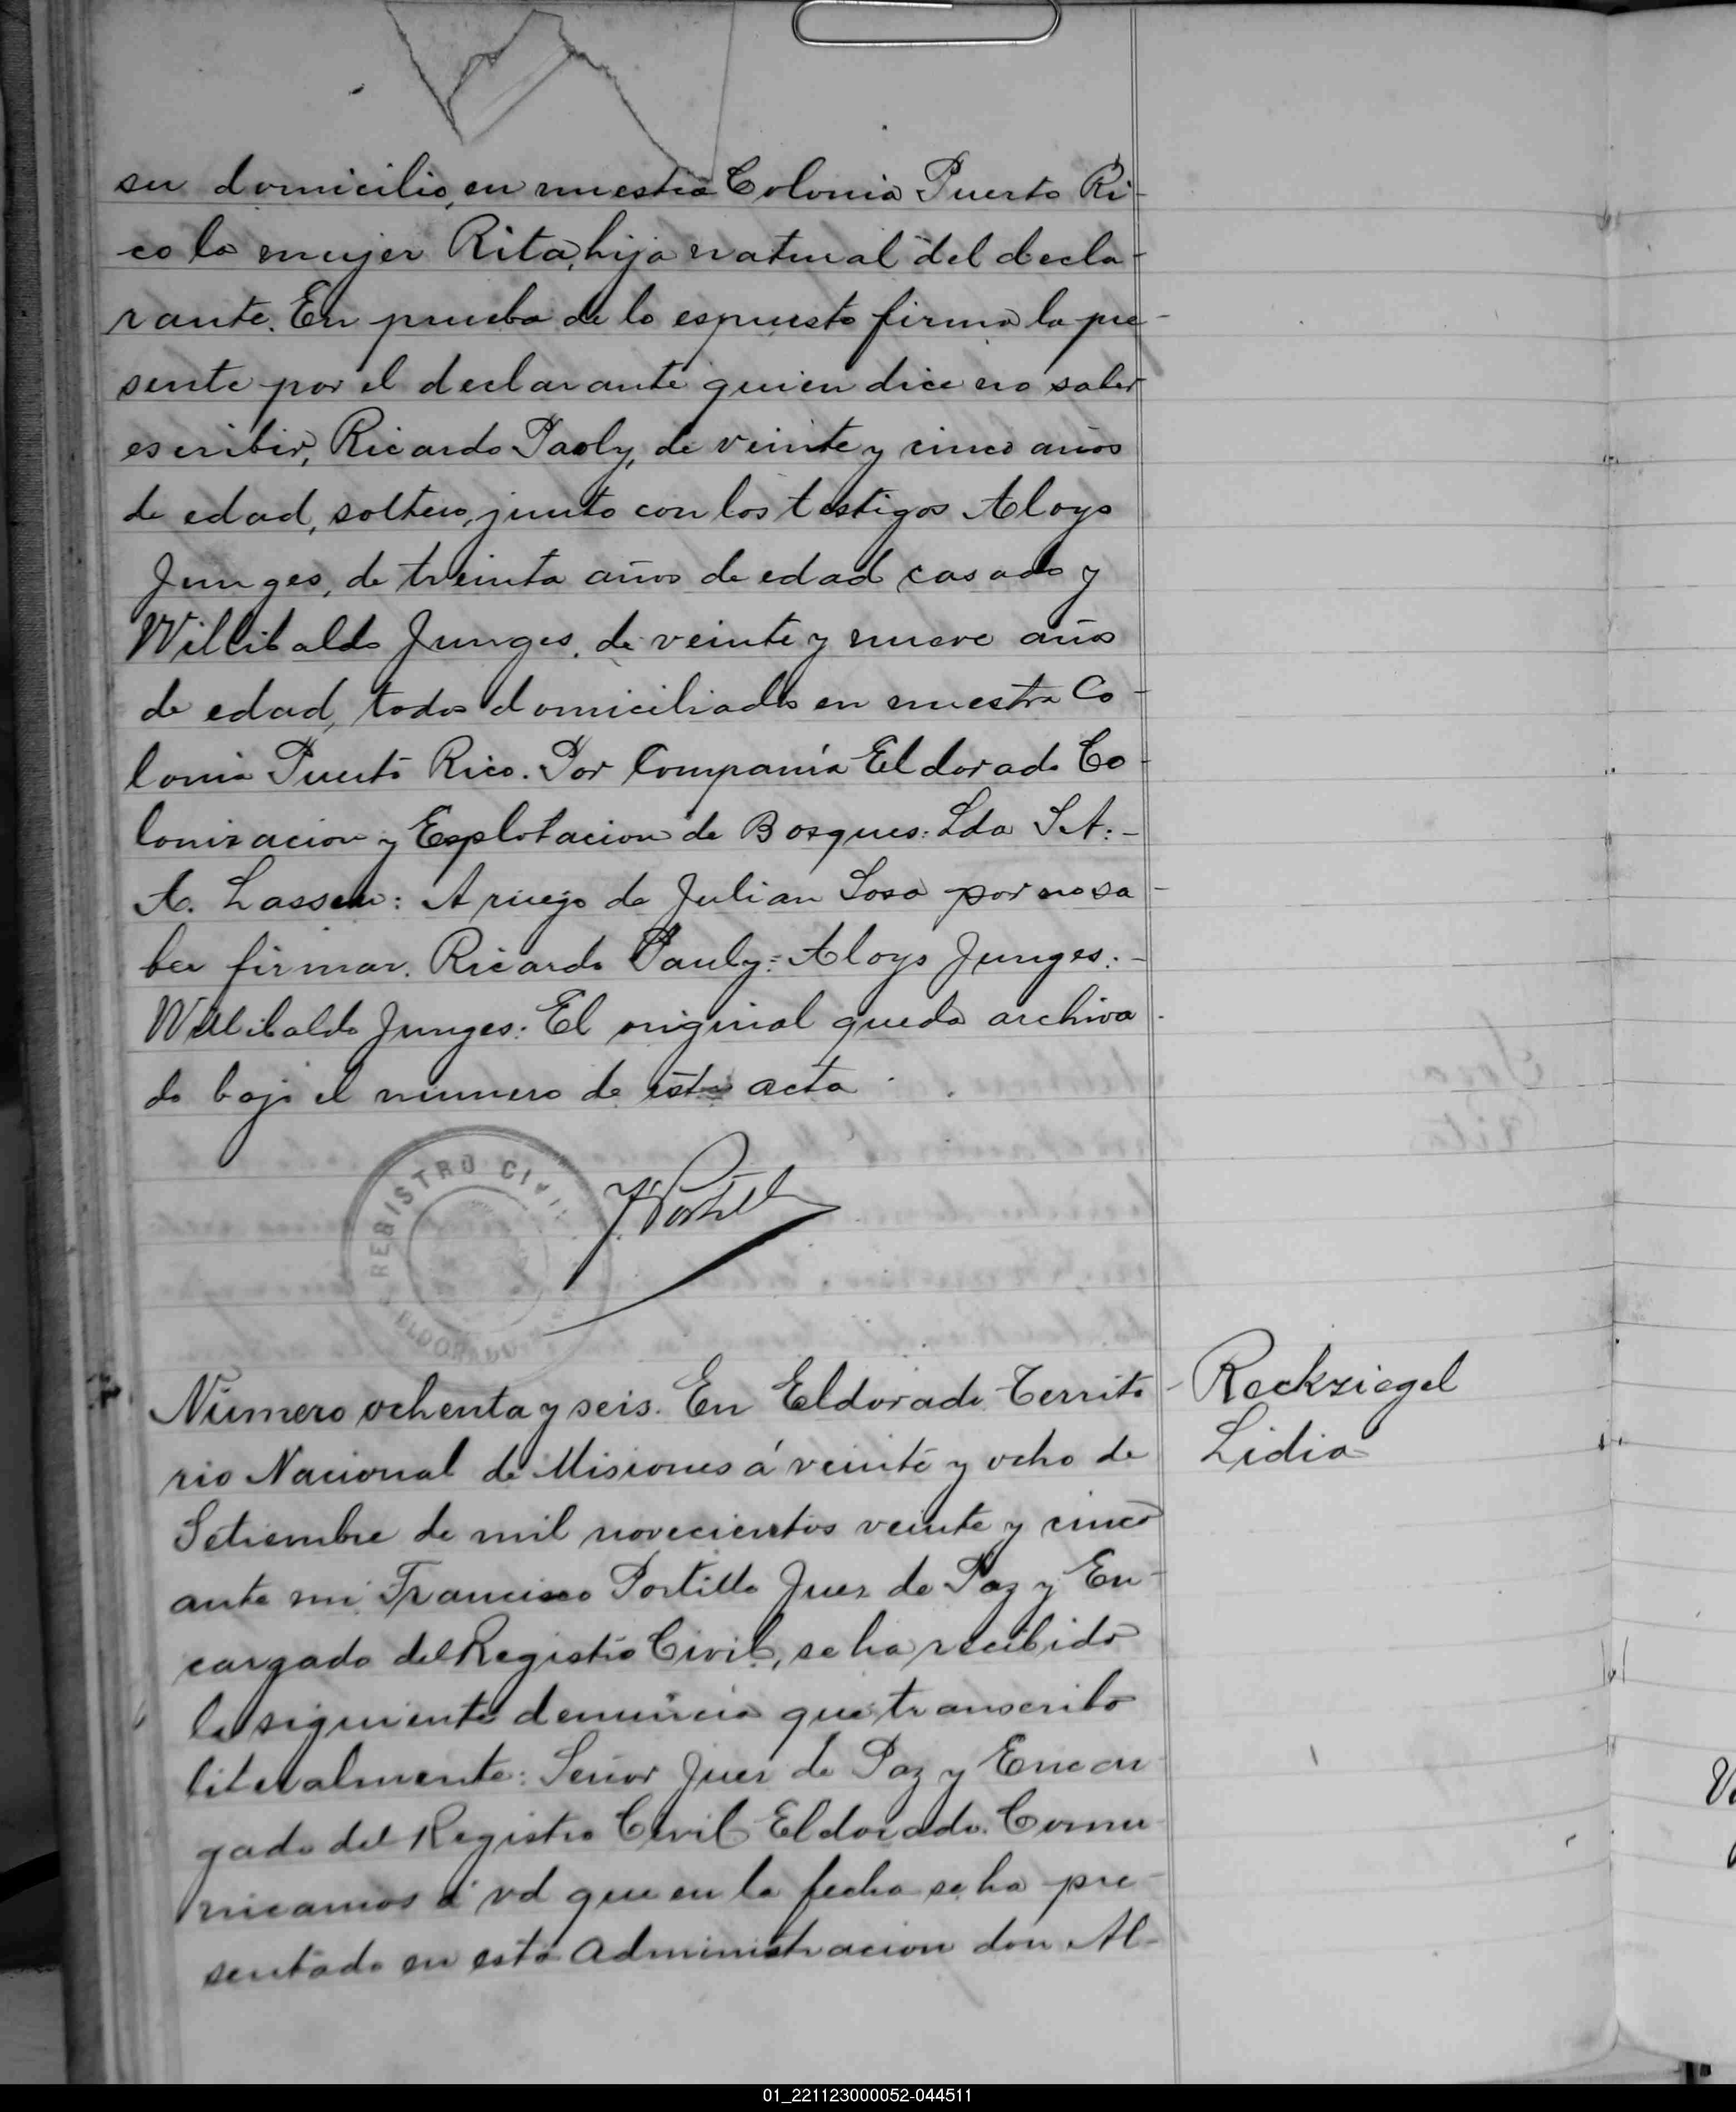 su domicilio, en nuestra Colonia Puerto Ri-
co la mujer Rita, hija natural del decla-
rante. En prueba de lo espuesto firma la pre-
sente por el declarante quien dice no saber
escribir, Ricardo Paoly, de veinte y cinco años
de edad, soltero, junto con los testigos Aloys
Junges, de treinta años de edad casado y
Willibaldo Junges, de veinte y nueve años
de edad, todos domiciliados en nuestra Co-
lonia Puerto Rico. Por Compañía Eldorado Co-
lonizacion y Esplotacion de Bosques: Lda S.A:-
A. Lassen: A ruego de Julian Sosa por no sa-
ber firmar. Ricardo Pauly: Aloys Junges:-
Willibaldo Junges: El original queda archiva-
do bajo el número de esta acta.
REGISTRO CIVIL
ELDORADO
F. Portillo
Número ochenta y seis. En Eldorado Territo-
rio Nacional de Misiones á veinte y ocho de
Setiembre de mil novecientos veinte y cinco
ante mi Francisco Portillo Juez de Paz y En-
cargado del Registro Civil, se ha recibido
la siguiente denuncia que transcribo
literalmente: Señor Juez de Paz y Encar-
gado del Registro Civil Eldorado. Comu-
nicamos á vd que en la fecha se ha pre-
sentado en esta Administracion don Al-
Reckziegel
Lidia
01_221123000052-044511